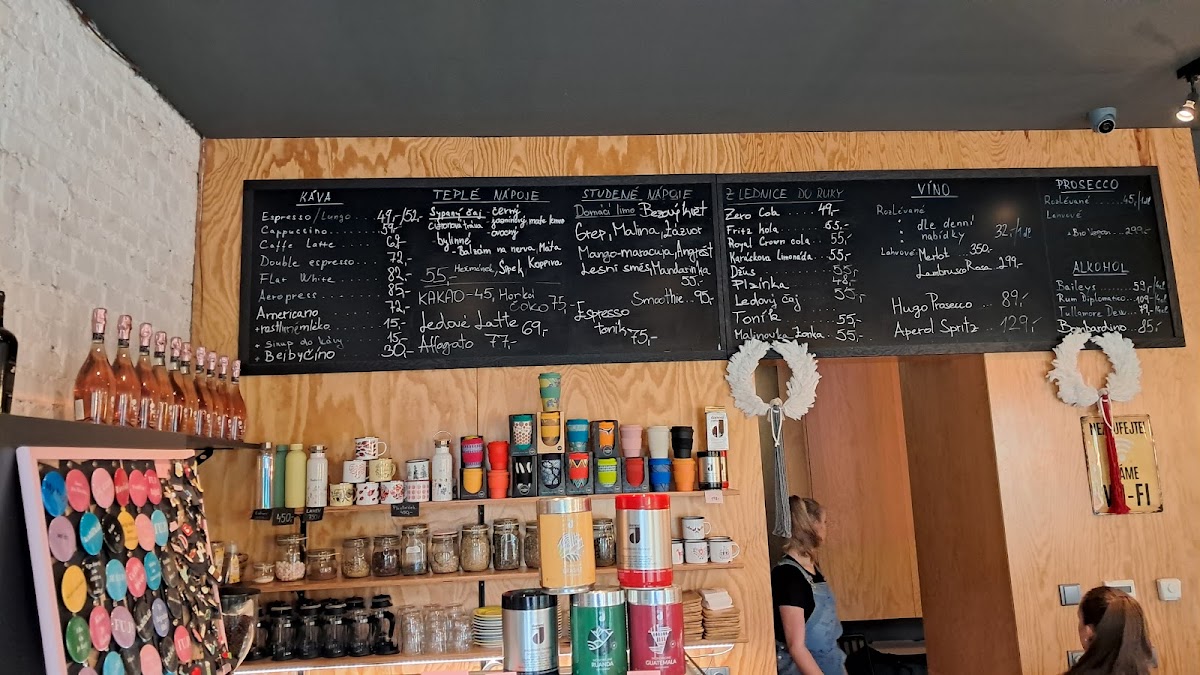 KÁVA
Espresso/Lungo... 49,-/52,-
Cappuccino... 59,-
Caffe Latte
Double espresso... 72,-
Flat White... 82,-
Aeropress... 85,-
Americano... 72,-
+rostlinné mléko... 15,-
+ sirup do kávy... 15,-
+ Bejbyčino... 30,-
TEPLÉ NÁPOJE
Sypaný čaj - černý
jasmínový, mate lemon
Citronová tráva
ovocný
bylinné
- Balzám na nervy, Máta
55,- Heřmánek, Šípek, Kopřiva
KAKAO-45, Horká
čoko 75,-
Ledové Latte 69,-
Affogato 77,-
STUDENÉ NÁPOJE
Domácí limo Bezový květ
Grep, Malina, Zázvor
Mango-maracuja, Angrešt
Lesní směs, Mandarinka
55,-
Smoothie.. 95,-
Espresso
tonik 75,-
Z LEDNICE DO RUKY
Zero Cola.... 49,-
Fritz kola... 65,-
Royal Crown cola.. 55,-
Karáskova limonáda.. 55,-
Džus... 55,-
Plzínka... 48,-
Ledový čaj... 55,-
Toník... 55,-
Malinovka Zonka.. 55,-
VÍNO
Rozlévané
: dle denní
nabídky 32,-/1dl
Lahvové: Merlot 350,-
Lambrusco Rosa ..299,-
Hugo Prosecco ... 89,-
Aperol Spritz ... 129,-
PROSECCO
Rozlévané......45,-/1dl
Lahvové
• Bio Vegan...299,-
ALKOHOL
Baileys... 59,-/4cl
Rum Diplomatico..109,-/4cl
Tullamore Dew... 79,-/4cl
Bombardino.. 85,-
450,-
RWANDA
GUATEMALA
WI-FI